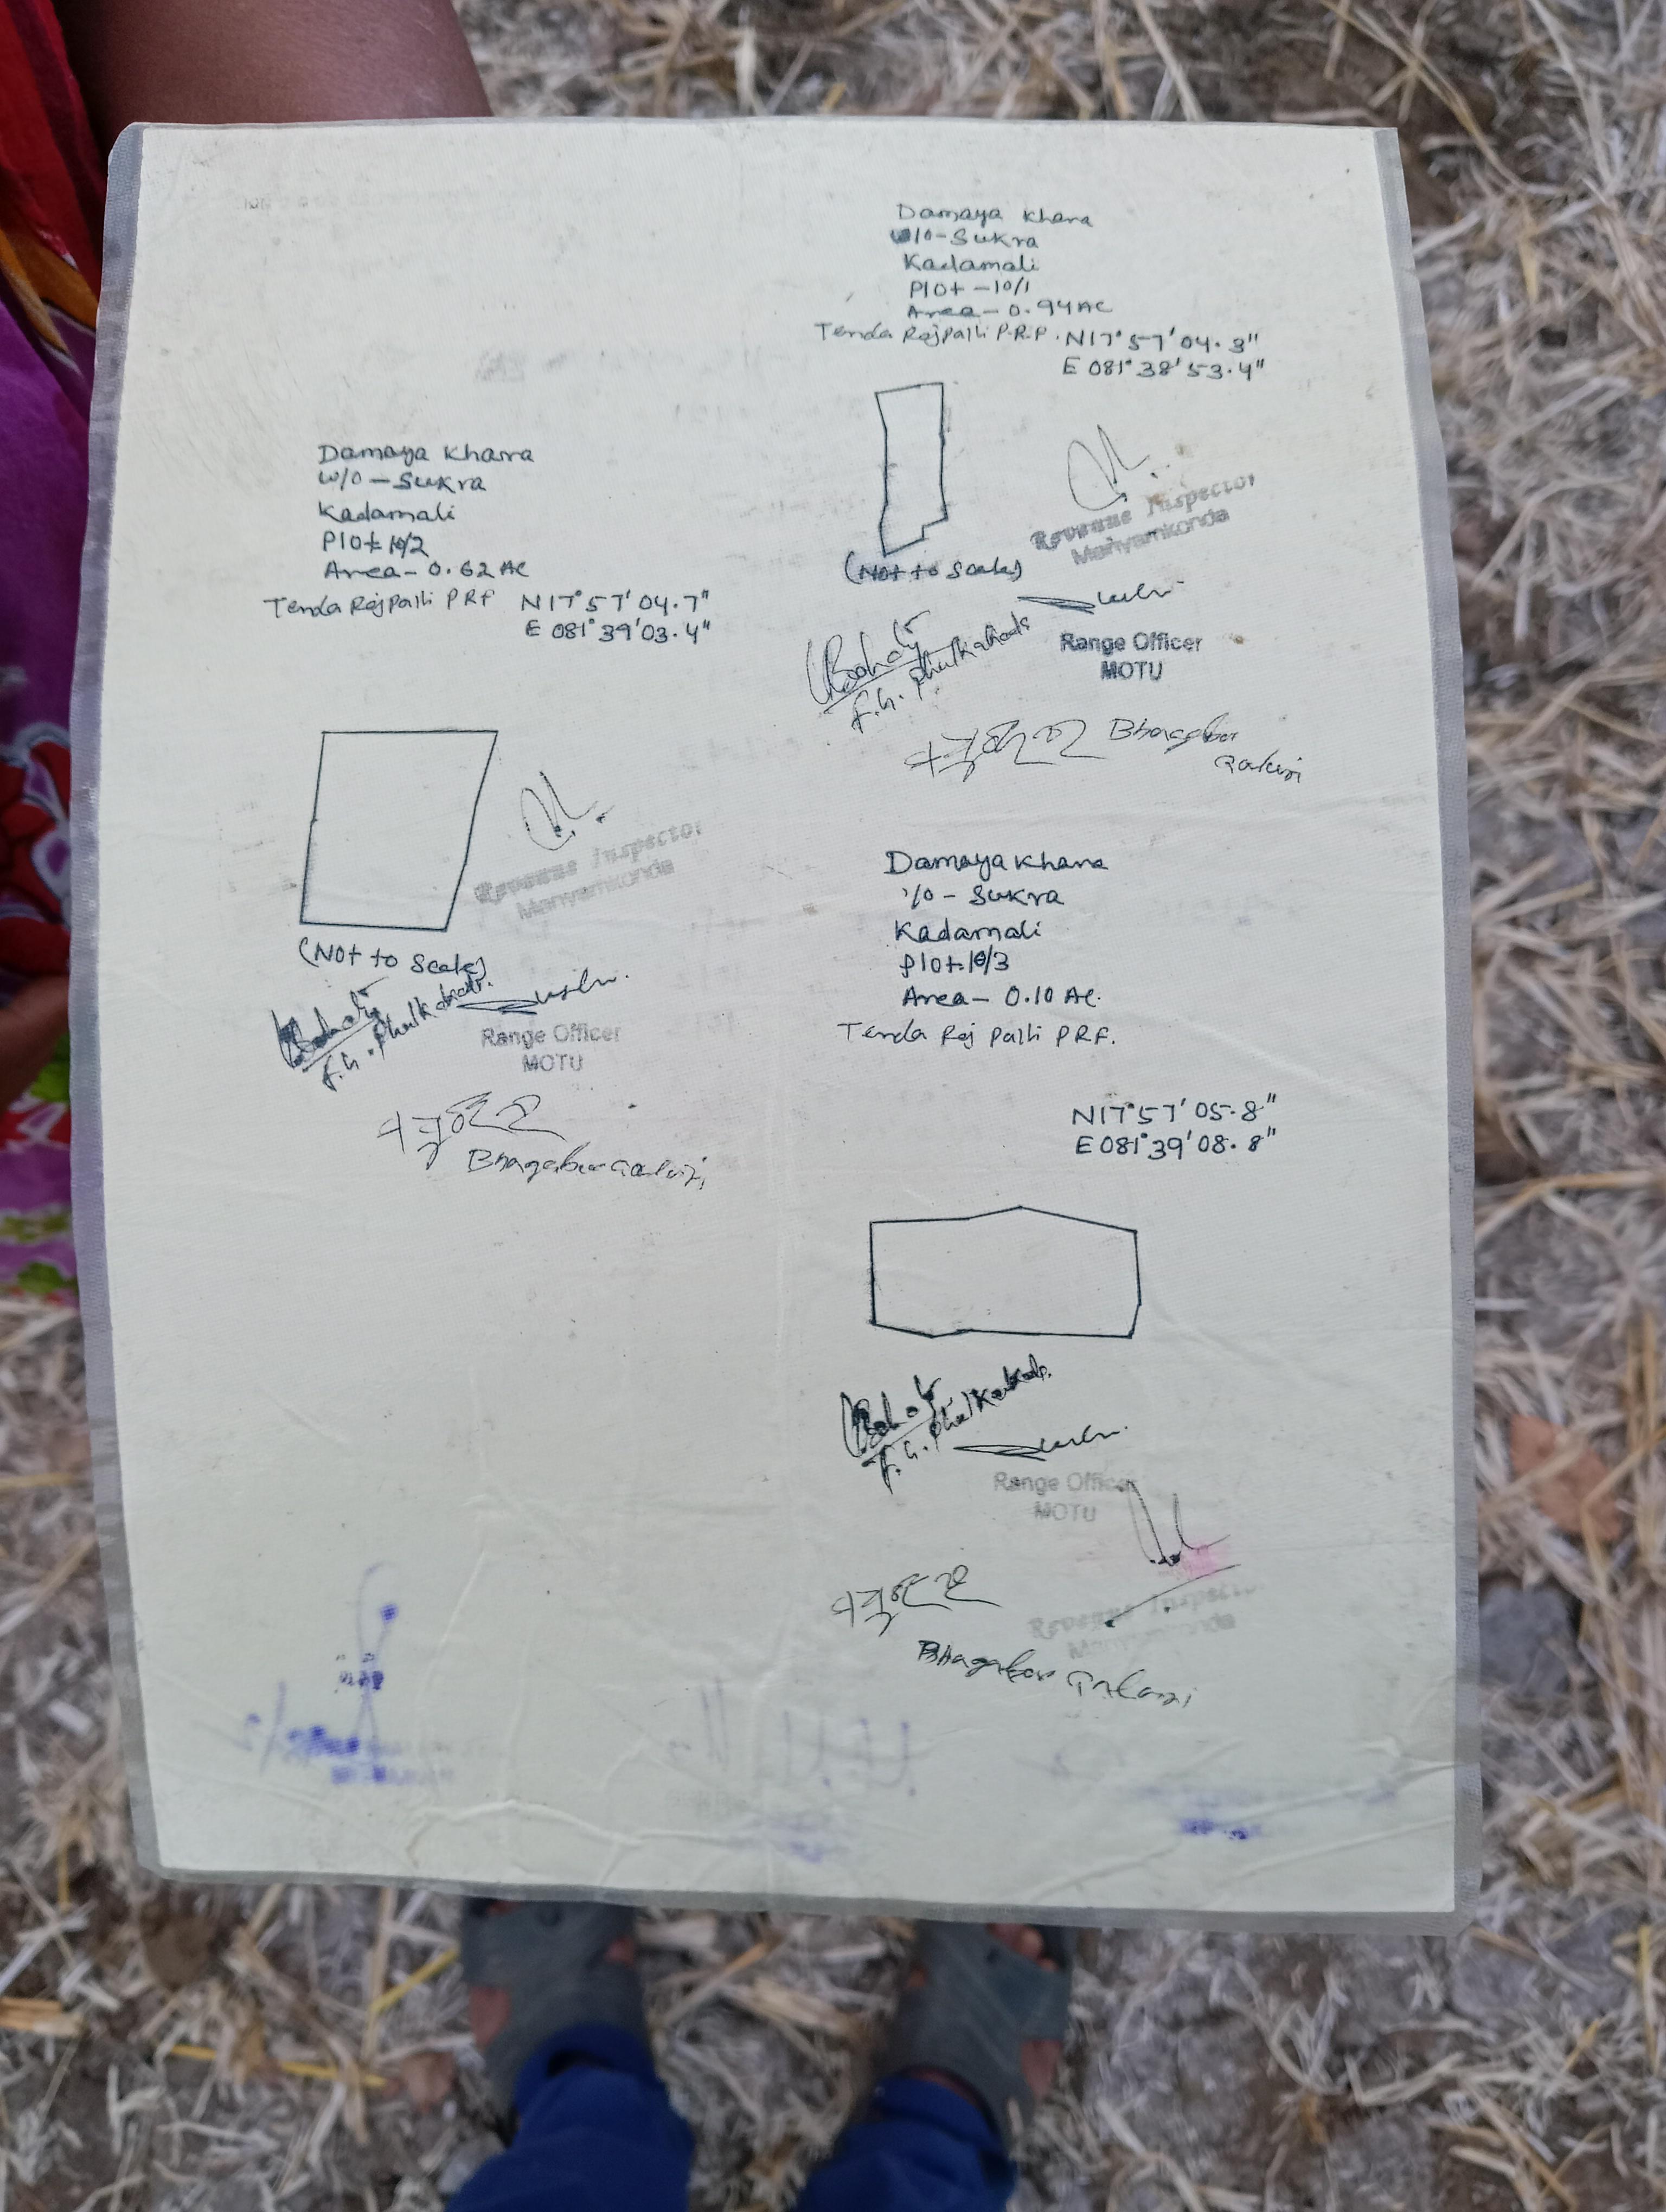 Damaya Khara
W/O - Sukra
Kadamali
Plot - 10/1
Area - 0.94 AC
Tenda Rajpalli P.R.F. N17°57'04.3"
E 081°38'53.4"
(Not to Scale)
Revenue Inspector
Manyamkonda
Range Officer
MOTU
F.G. Phulkahads
Bhagaban
Damaya Khara
W/O - Sukra
Kadamali
Plot 10/2
Area - 0.62 AC
Tenda Rajpalli PRF N17°57'04.7"
E 081°39'03.4"
Revenue Inspector
Manyamkonda
(Not to Scale)
Range Officer
MOTU
Bhagaban
Damaya Khara
W/O - Sukra
Kadamali
Plot 10/3
Area - 0.10 AC.
Tenda Raj palli PRF.
N17°57'05.8"
E 081°39'08.8"
Range Officer
MOTU
Revenue Inspector
Manyamkonda
Bhagaban